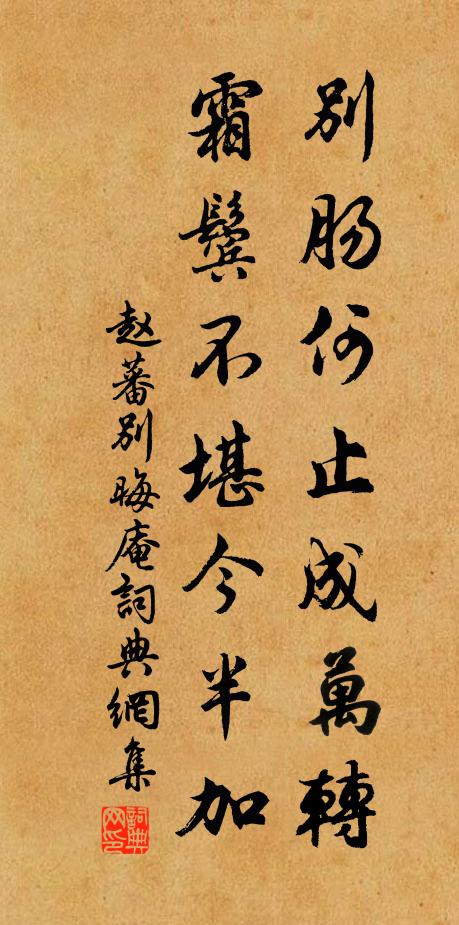 別腸何止成萬轉
霜鬢不堪今半加
赵蕃別晦庵詞典網集
詞典网印